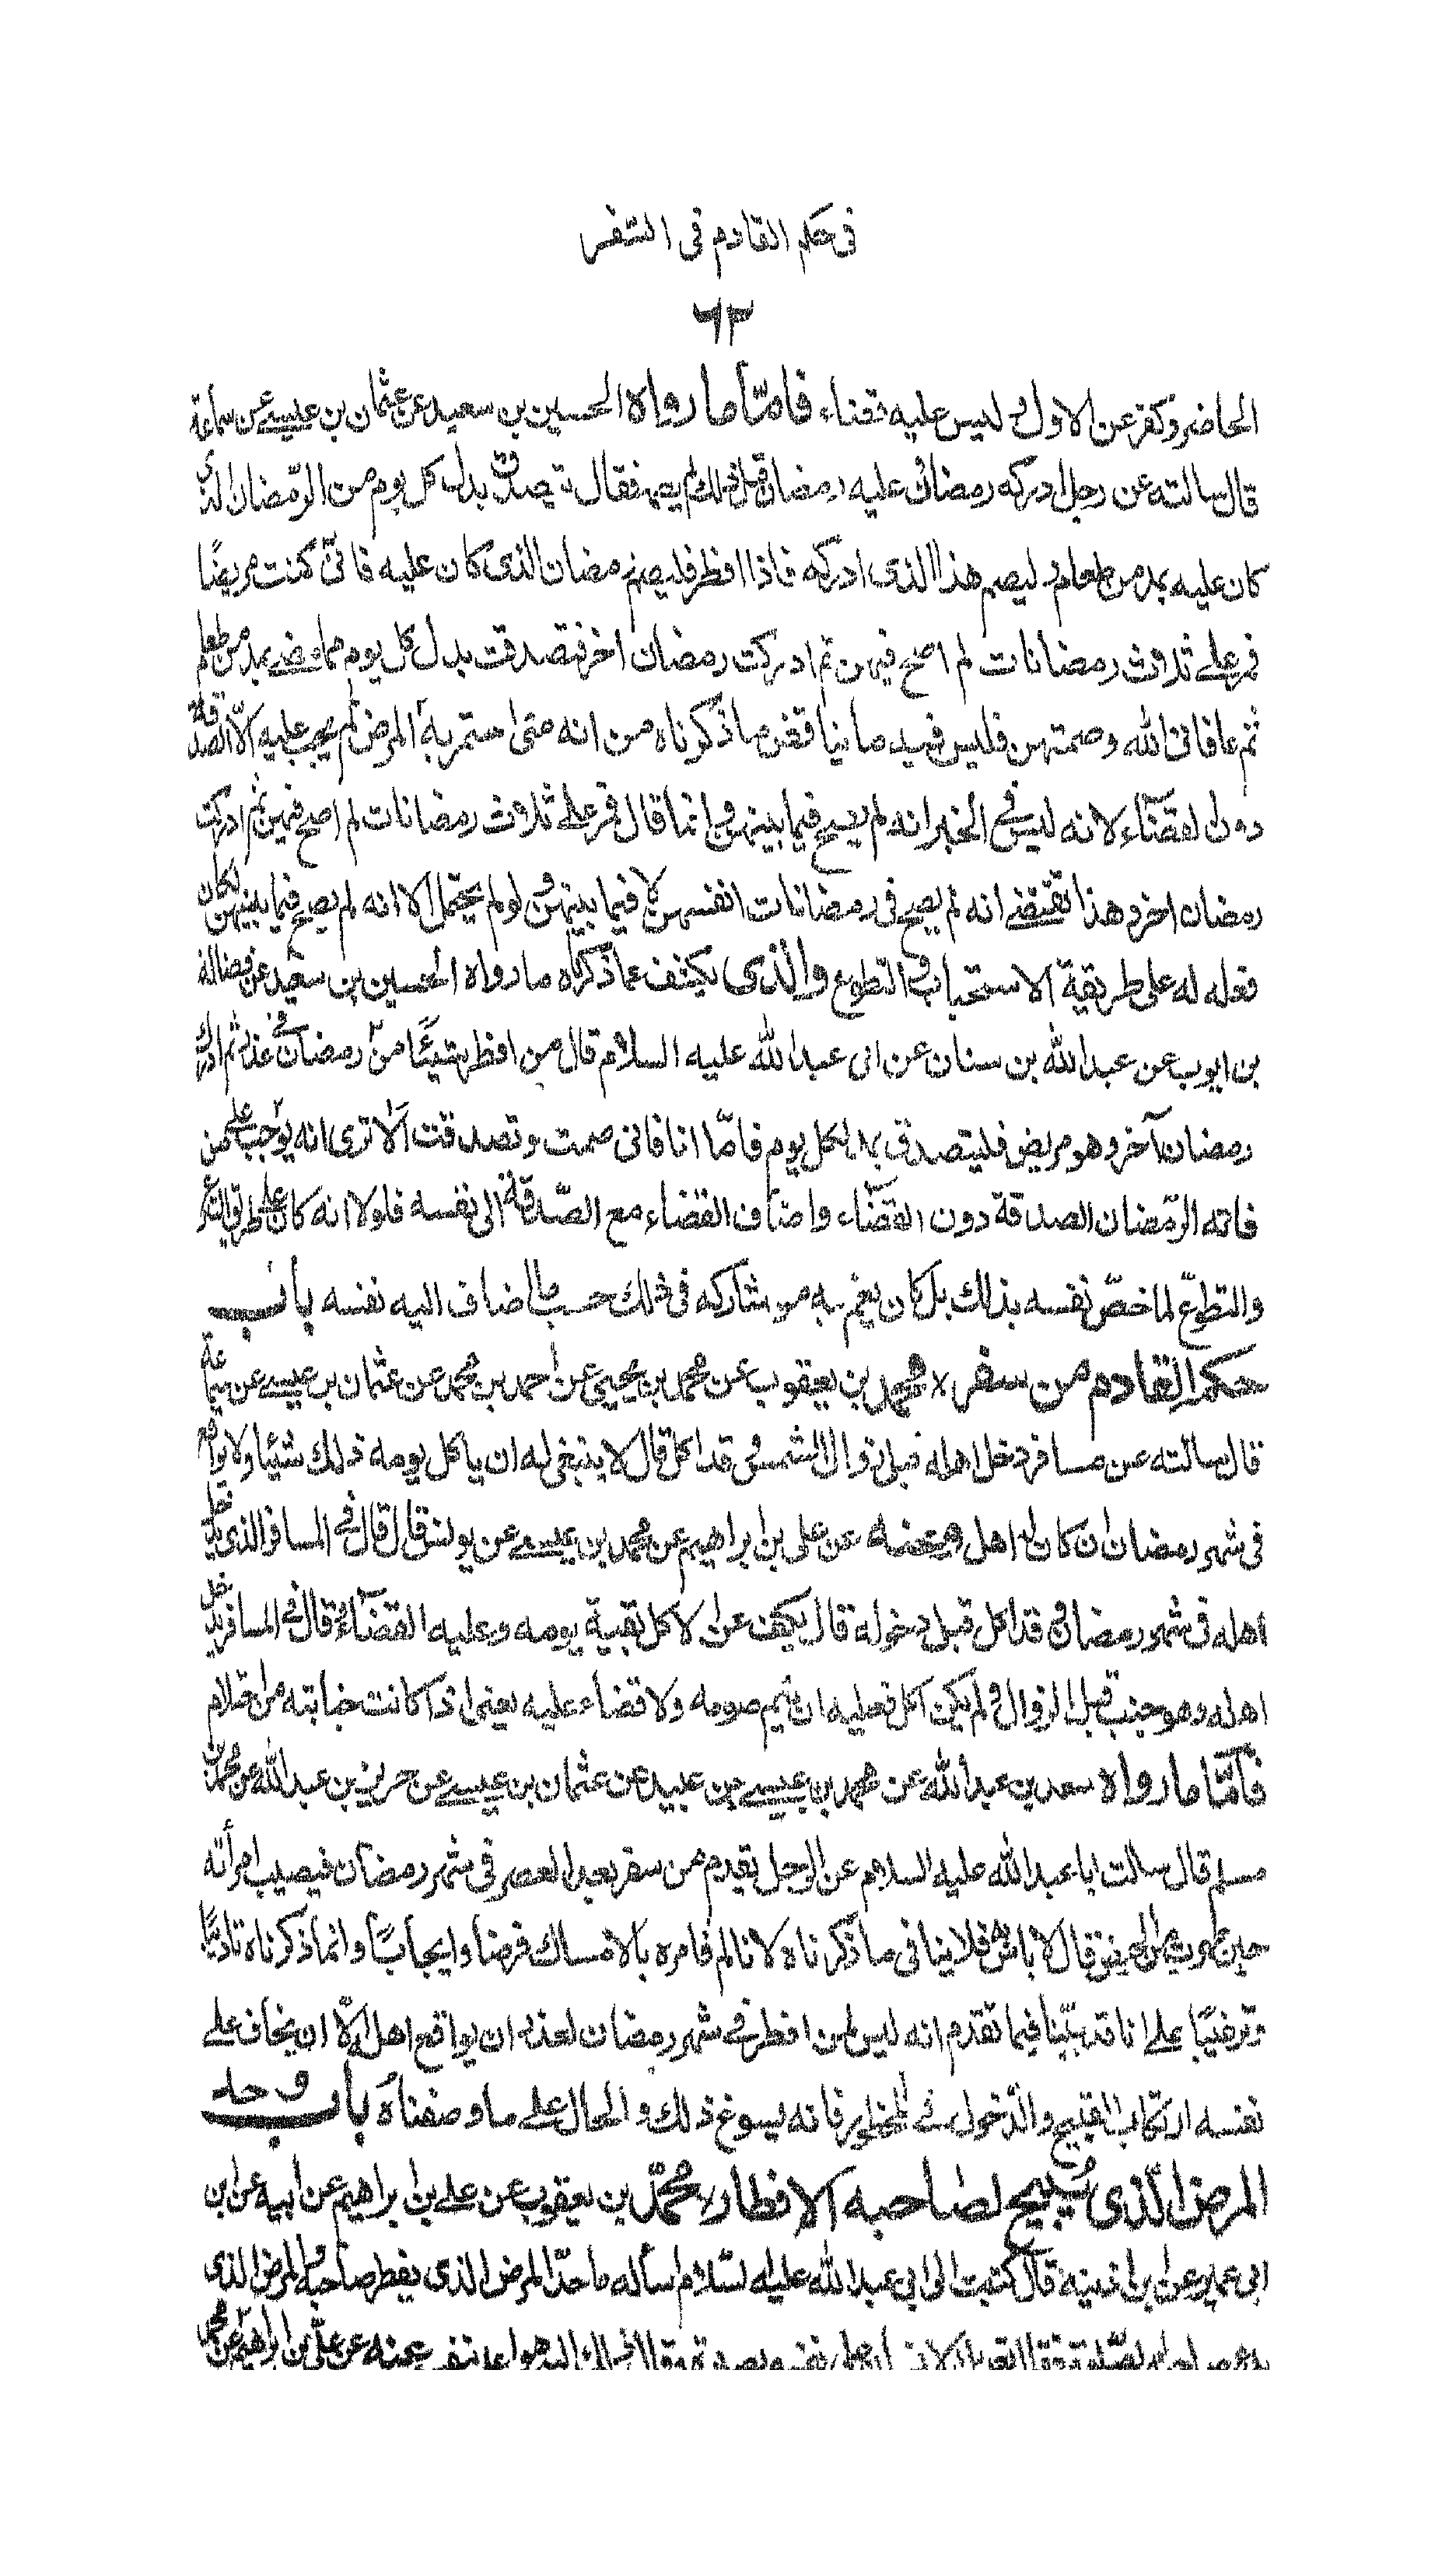 في حكم القادم في السفر
٦٣
الحاضر وكفر عن الاول وليس عليه قضاء فامّا ما رواه الحسين بن سعيد عن عثمان بن عيسى عن سماعة
قال سالته عن رجل ادركه رمضان وعليه رمضان قبل ذلك لم يصمه فقال يتصدق بدل كل يوم من الرمضان الذى
كان عليه بمد من طعام وليصم هذا الذى ادركه فاذا افطر فليصم رمضان الذى كان عليه فانّى كنت مريضًا
فمر على ثلاث رمضانات لم اصح فيهن ثم ادركت رمضان اخر فتصدقت بدل كل يوم مما مضى بمد من طعام
ثم عافانى الله وصمتهن فليس فيه ما ينا قض ما ذكرناه من انه متى استمر به المرض لم يجب عليه الّا الصدقة
دون القضاء لانه ليس في الخبر انه لم يصح فيما بينهن وانما قال فمر على ثلاث رمضانات لم اصح فيهن ثم ادركت
رمضان اخر وهذا يقتضى انه لم يصح فى رمضانات انفسهن لا فيما بينهن ولو لم يحتمل الا انه لم يصح فيما بينهن لكان
فعله له على طريقة الاستحباب والتطوع والذى يكشف عما ذكرناه ما رواه الحسين بن سعيد عن فضالة
بن ايوب عن عبد الله بن سنان عن ابى عبد الله عليه السلام قال من افطر شيئًا من رمضان في عذر ثم ادرك
رمضان آخر وهو مريض فليتصدق بمد لكل يوم فامّا انا فانى صمت وتصدقت الا ترى انه يوجب على من
فاته الرمضان الصدقة دون القضاء واضاف القضاء مع الصّدقة الى نفسه فلولا انه كان على طريق التبرع
والتطوع لما خصّ نفسه بذلك بل كان يعم به من شاركه فى ذلك حسب ما اضاف اليه نفسه باب
حكم القادم من سفره محمد بن يعقوب عن محمد بن يحيى عن احمد بن محمد عن عثمان بن عيسى عن سماعة
قال سالته عن مسافر دخل اهله قبل زوال الشمس وقد اكل قال لا ينبغى له ان ياكل يومه ذلك شيئا ولا يواقع
فى شهر رمضان ان كان له اهل وعنه عن على بن ابراهيم عن محمد بن عيسى عن يونس قال قال فى المسافر الذى يدخل
اهله فى شهر رمضان وقد اكل قبل دخوله قال يكف عن الاكل بقية يومه وعليه القضاء وقال فى المسافر يدخل
اهله وهو جنب قبل الزوال ولم يكن اكل فعليه ان يتم صومه ولا قضاء عليه يعنى اذا كانت جنابته من احتلام
فامّا ما رواه سعد بن عبد الله عن محمد بن عيسى بن عبيد عن عثمان بن عيسى عن حريز بن عبد الله عن محمد بن
مسلم قال سالت ابا عبد الله عليه السلام عن الرجل يقدم من سفر بعد العصر فى شهر رمضان فيصيب امرأته
حين طهرت من الحيض قال لا باس فلا ينافى ما ذكرناه لانا لم نامره بالامساك فرضا وايجابًا وانما ذكرناه تاديبًا
وترغيبًا على انا قد بيّنا فيما تقدم انه ليس لمن افطر فى شهر رمضان لعذر ان يواقع اهله الّا ان يخاف على
نفسه ارتكاب القبيح والدّخول فى المحظور فانه يسوغ ذلك والحال على ما وصفناه باب حد
المرض الّذى يبيح لصاحبه الافطار محمّد بن يعقوب عن على بن ابراهيم عن ابيه عن ابن
ابى عمير عن ابن اذينة قال كتبت الى ابى عبد الله عليه السّلام أسأله ما حدّ المرض الذى يفطر صاحبه والمرض الذى